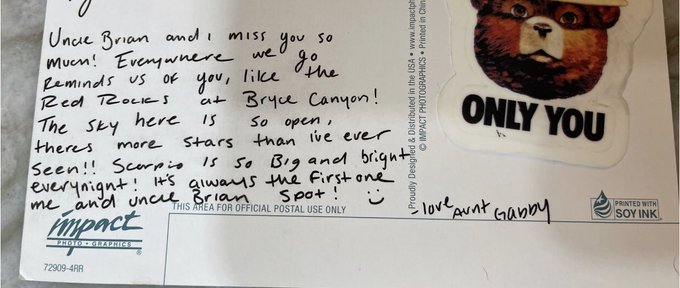 Uncle Brian and i miss you so
much! Everywhere we go
Reminds us of you, like the
Red Rocks at Bryce Canyon!
The sky here is so open,
theres more stars than i've ever
seen!! Scorpio is so Big and bright
everynight! it's always the first one
me and uncle Brian spot!
-love Aunt Gabby
THIS AREA FOR OFFICIAL POSTAL USE ONLY
impact
PHOTO • GRAPHICS
®
72909-4RR
Proudly Designed & Distributed in the USA • www.impactph
© IMPACT PHOTOGRAPHICS • Printed in Chin
ONLY YOU
PRINTED WITH
SOY INK